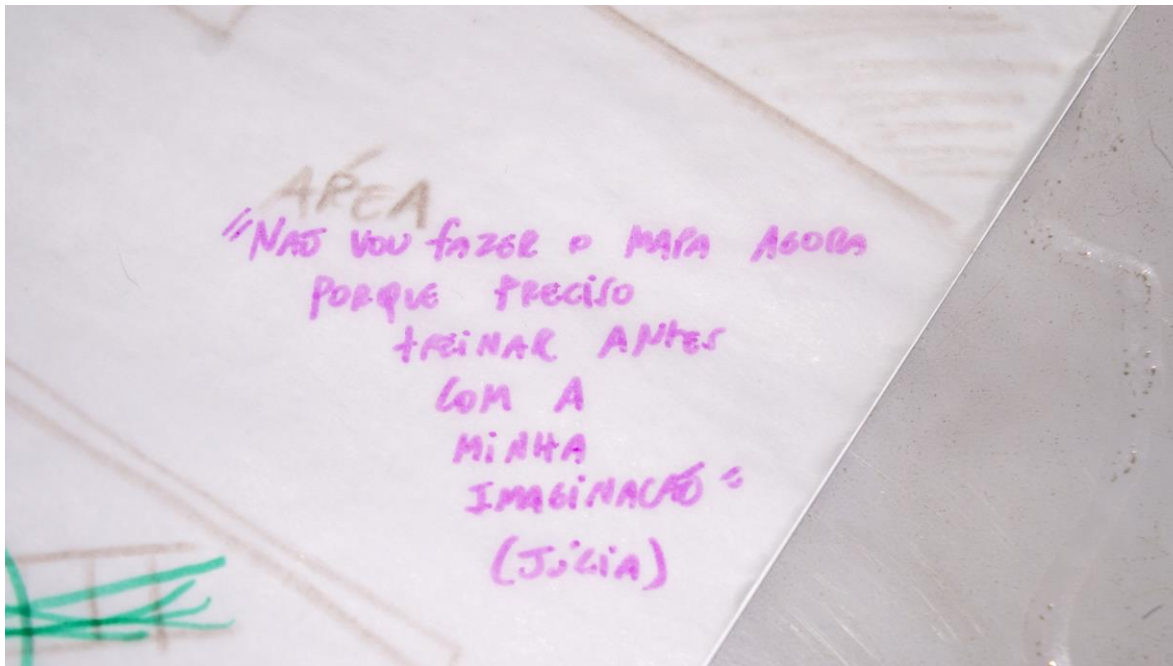 ÁREA
"NÃO VOU FAZER O MAPA AGORA
PORQUE PRECISO
TREINAR ANTES
COM A
MINHA
IMAGINAÇÃO"
(JÚLIA)